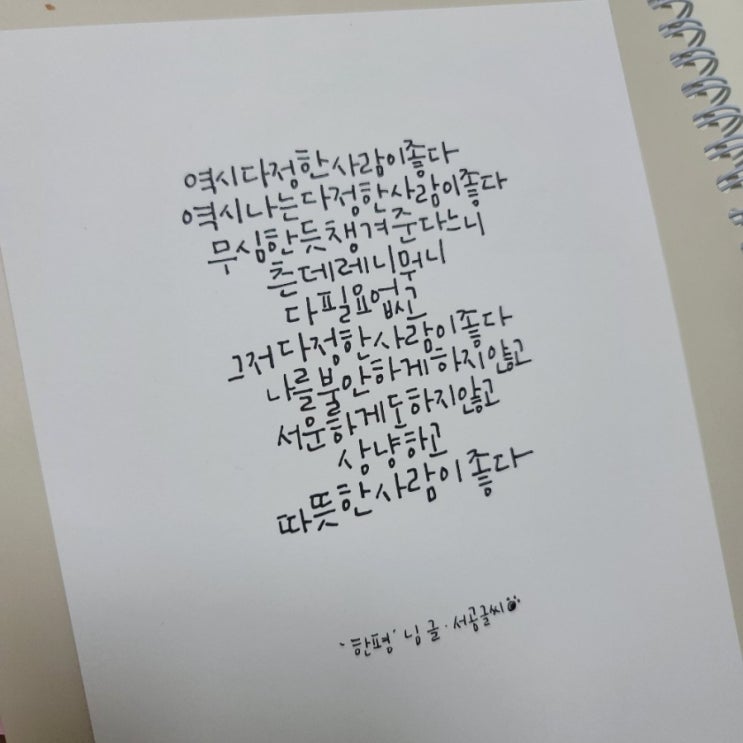 역시 다정한 사람이 좋다
역시 나는 다정한 사람이 좋다
무심한 듯 챙겨준다느니
츤데레니 뭐니
다 필요 없고
그저 다정한 사람이 좋다
나를 불안하게 하지 않고
서운하게도 하지 않고
상냥하고
따뜻한 사람이 좋다
'한평' 님 글 · 서공글씨